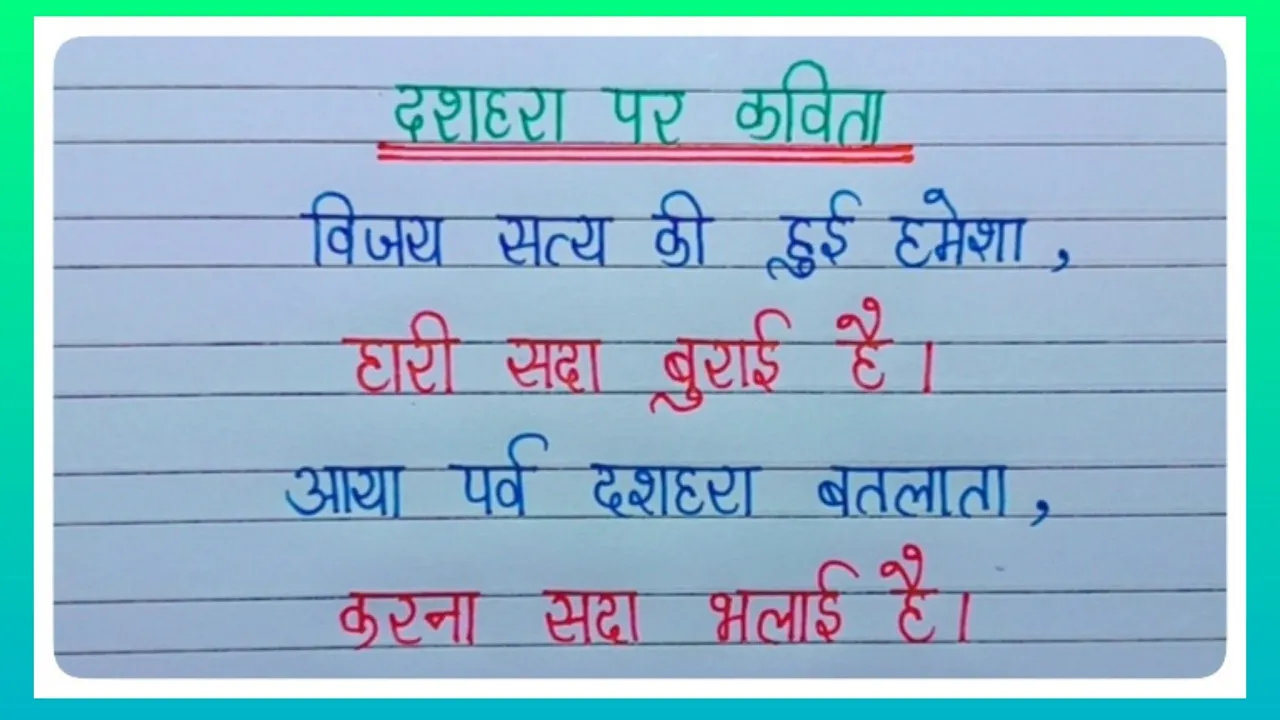 दशहरा पर कविता
विजय सत्य की हुई हमेशा,
हारी सदा बुराई है।
आया पर्व दशहरा बतलाता,
करना सदा भलाई है।